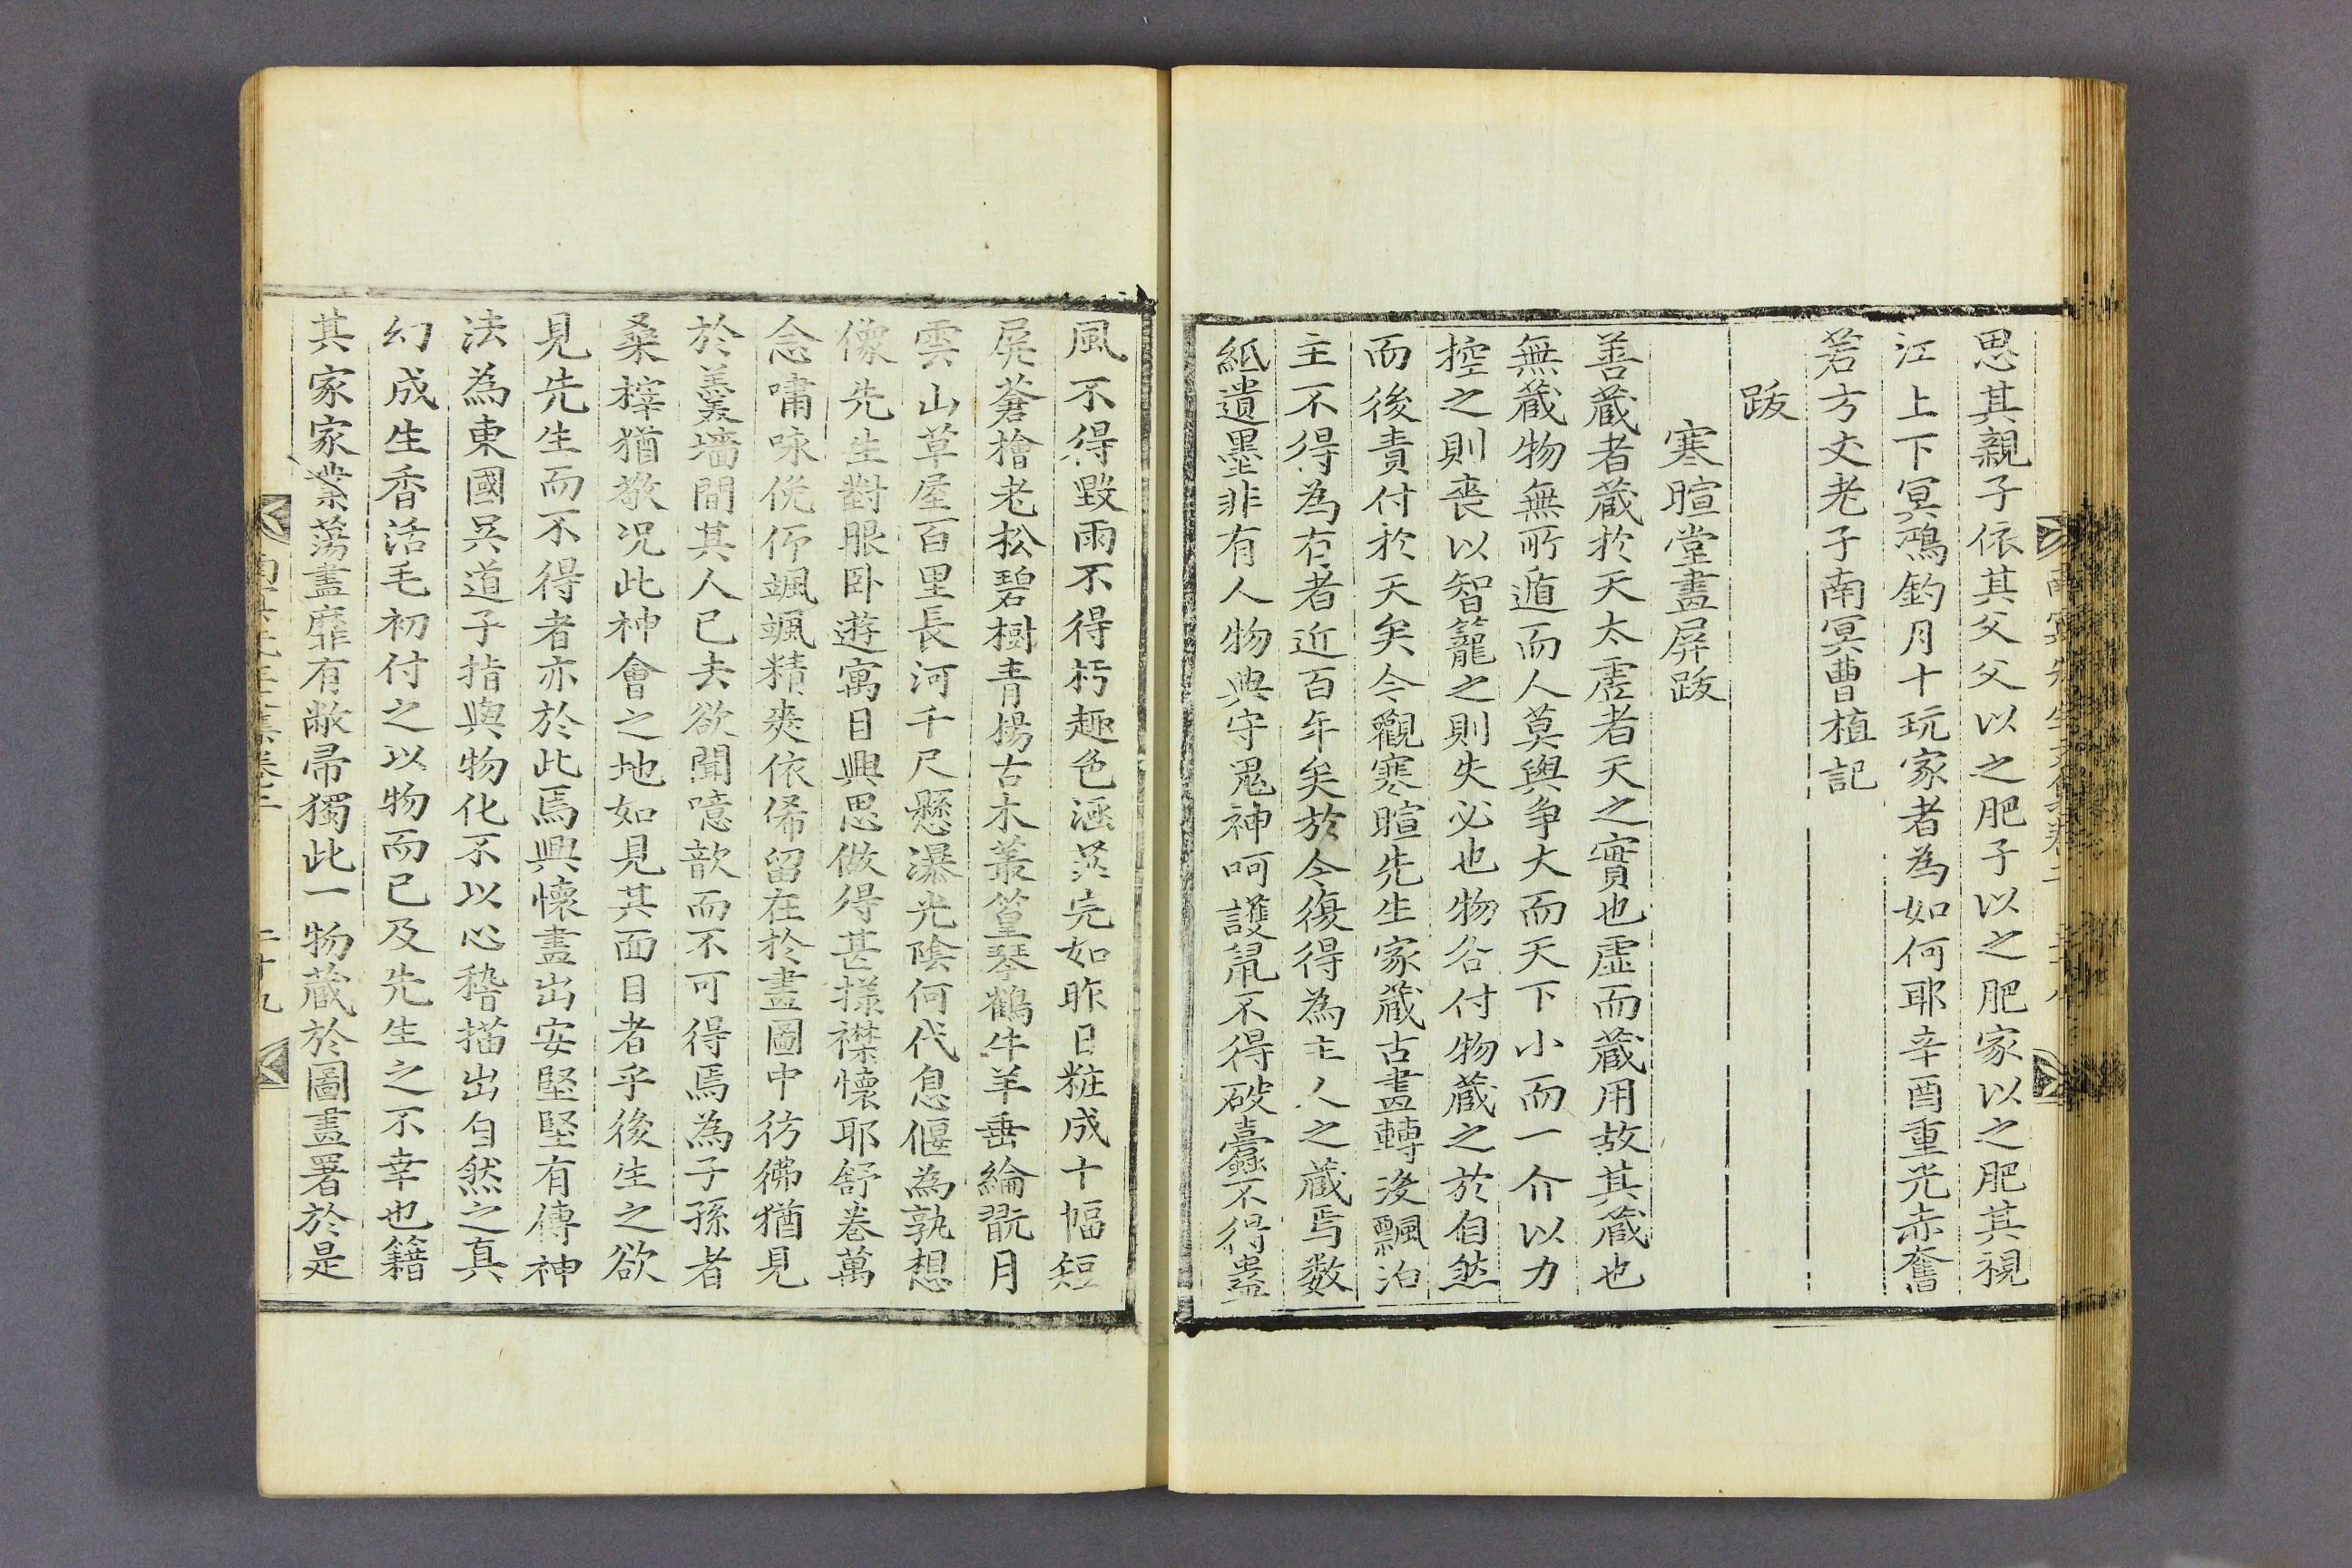 思其親子依其父父以之肥子以之肥家以之肥其視
江上下冥鴻釣月十玩家者為如何耶辛酉重光赤奮
若方丈老子南冥曹植記
跋
寒暄堂畫屛跋
善蔵者蔵於天太虛者天之實也虛而蔵用故其蔵也
無蔵物無所遁而人莫與争大而天下小而一介以力
控之則喪以智籠之則失必也物各付物蔵之於自然
而後責付於天矣今觀寒暄先生家蔵古畫轉沒飄泊
主不得為有者近百年矣於今復得為主人之蔵焉数
紙遺墨非有人物典守鬼神呵護鼠不得破蠧不得蠱
風不得毀雨不得朽趣色涵淡完如昨日粧成十幅短
屛蒼檜老松碧樹青楊古木叢篁琴鶴牛羊垂綸翫月
雲山草屋百里長河千尺懸瀑光陰何代息偃為孰想
像先生對眼卧遊寓目興思做得甚㨾襟懷耶舒卷萬
念嘯咏俛仰颯颯精爽依俙留在於畫圖中彷彿猶見
於羹墻間其人已去欲聞噫歆而不可得焉為子孫者
桑梓猶敬况此神會之地如見其面目者乎後生之欲
見先生而不得者亦於此焉興懷畫出安堅堅有傳神
法為東國吳道子指與物化不以心稽描出自然之真
幻成生香活毛初付之以物而已及先生之不幸也籍
其家家業蕩盡靡有敝帚獨此一物蔵於圖畫署於是
南冥先生文集卷之二
二十九